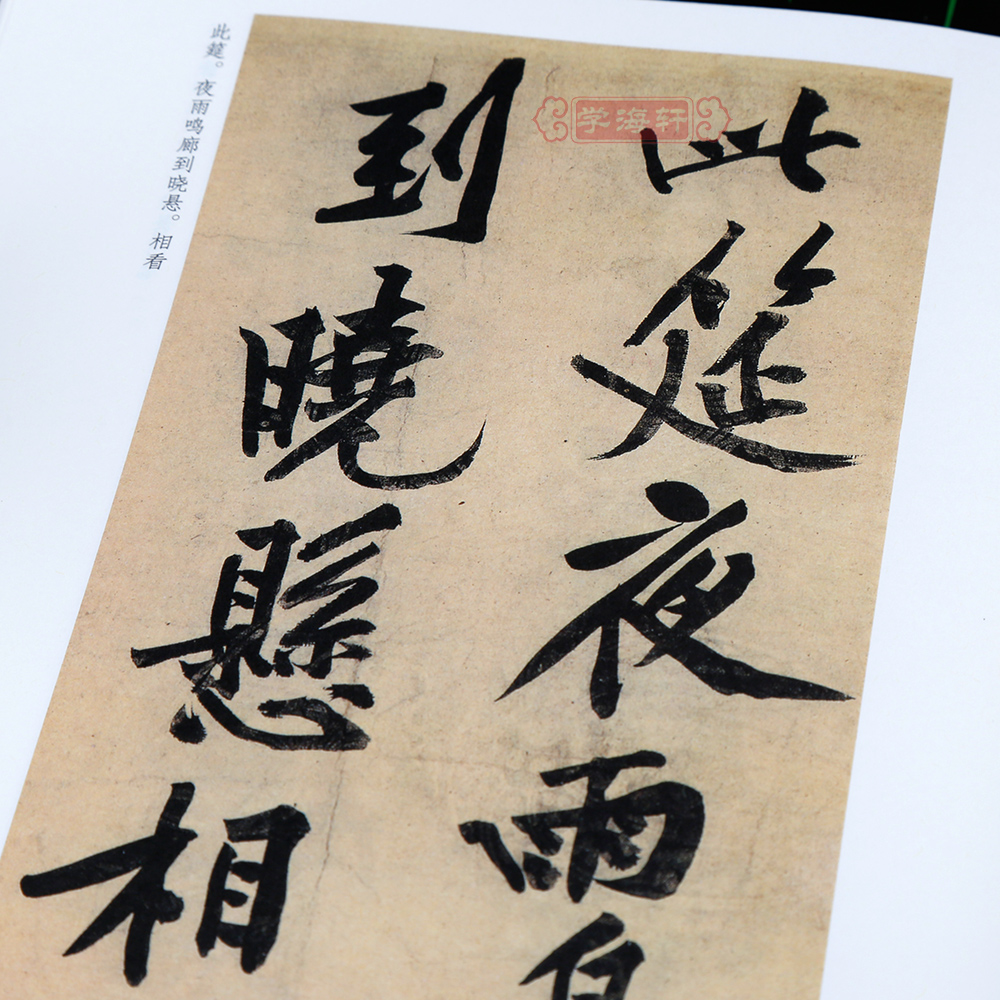 学海轩
此筵夜雨
到曉懸相
此筵。夜雨鸣廊到晓悬。相看